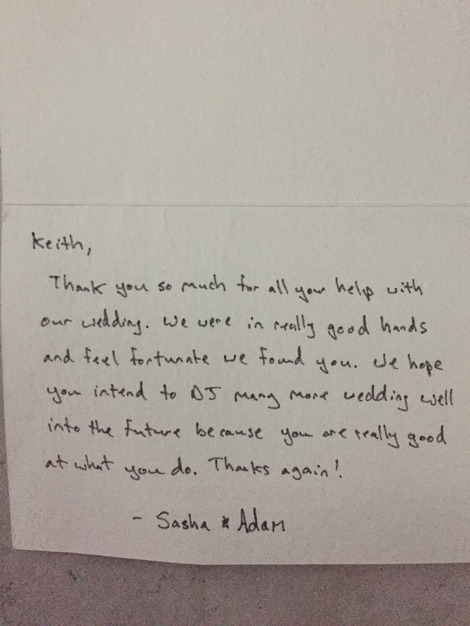 Keith,
Thank you so much for all your help with
our wedding. We were in really good hands
and feel fortunate we found you. We hope
you intend to DJ many more wedding well
into the future because you are really good
at what you do. Thanks again!
- Sasha & Adam